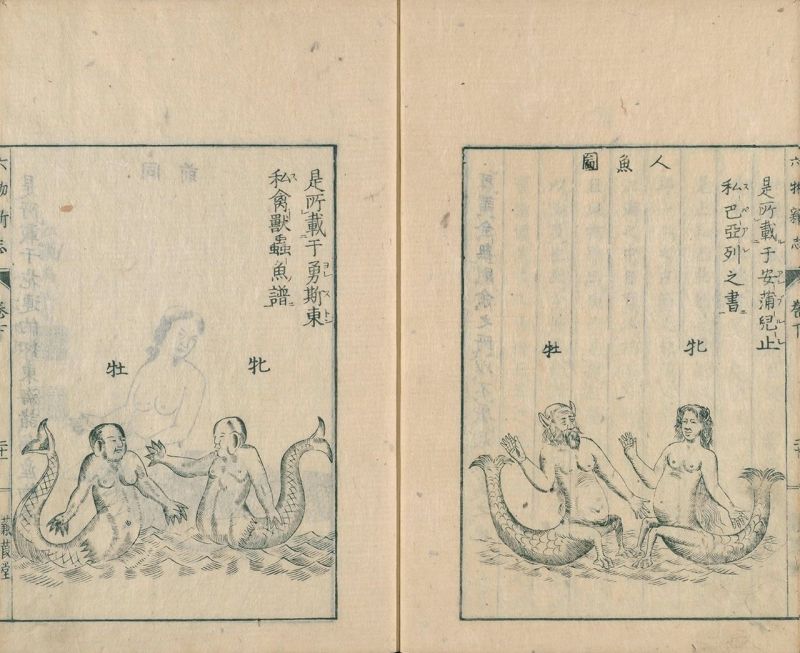 六物新志
卷下
人魚圖
是所載于安蒲兒止
私巴亞列之書
牝
牡
是所載于勇斯東
私禽獸蟲魚譜
牝
牡
六物新志
卷下
蒹葭堂